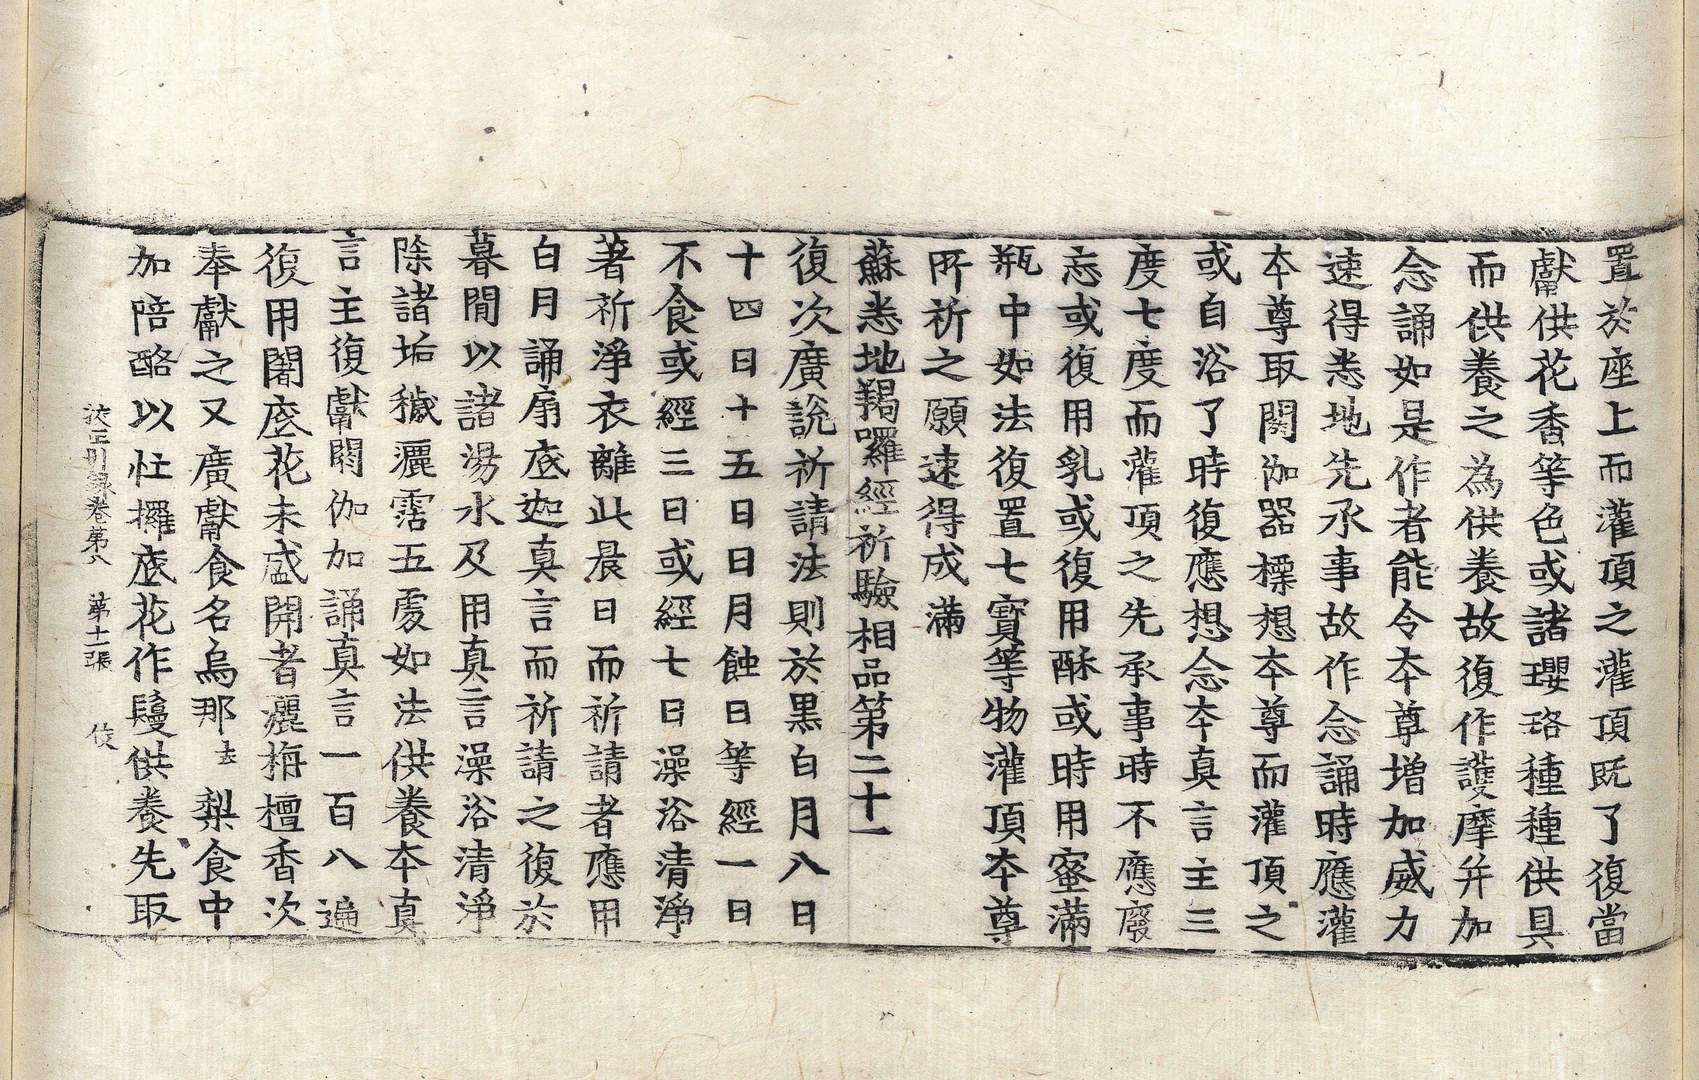 置於座上而灌頂之灌頂既了復當
獻供花香等色或諸瓔珞種種供具
而供養之為供養故復作護摩并加
念誦如是作者能令本尊增加威力
速得悉地先承事故作念誦時應灌
本尊取閼伽器標想本尊而灌頂之
或自浴了時復應想念本真言主三
度七度而灌頂之先承事時不應廢
忘或復用乳或復用酥或時用蜜滿
瓶中如法復置七寶等物灌頂本尊
所祈之願速得成滿
蘇悉地羯囉經祈驗相品第二十一
復次廣說祈請法則於黑白月八日
十四日十五日日月蝕日等經一日
不食或經三日或經七日澡浴清淨
著祈淨衣離此晨日而祈請者應用
白月誦扇底迦真言而祈請之復於
暮間以諸湯水及用真言澡浴清淨
除諸垢穢灑霑五處如法供養本真
言主復獻閼伽加誦真言一百八遍
復用闍底花未盛開者灑栴檀香次
奉獻之又廣獻食名烏那去梨食中
加陪酪以杜攞底花作鬘供養先取
校正別錄卷第八 第十一張 伎